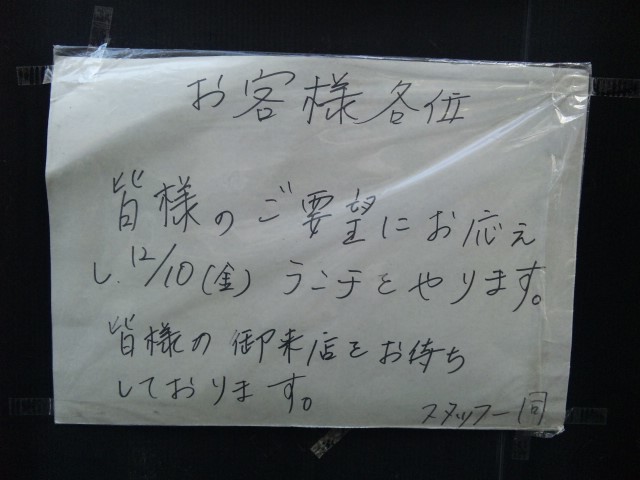 お客様各位
皆様のご要望にお応え
し、12/10(金)ランチをやります。
皆様の御来店をお待ち
しております。
スタッフ一同